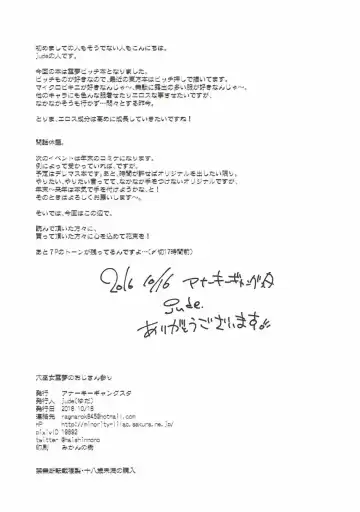 初めましての人もそうでない人もこんにちは。
judeの人です。
今回の本は霊夢ビッチ本となりました。
ビッチものが好きなので、最近の東方本はビッチ押しで描いてます。
マイクロビキニが好きなんじゃ～、無駄に露出の多い服が好きなんじゃ～。
他のキャラにも色んな服着せたりエロスな事させたいですが、
なかなかそうも行かず…悶々とする昨今。
とりま、エロス成分は高めに成長していきたいですね！
閑話休題。
次のイベントは年末のコミケになります。
例によって受かっていれば、ですが。
予定はデレマス本です。あと、時間が許せばオリジナルを出したい限り。
やりたい、やりたい言ってて、なかなか手をつけないオリジナルですが、
年末～来年は本気で手を付けようかな、と！
そのときはよろしくお願いします～。
そいでは、今回はこの辺で。
読んで頂いた方々に、
買って頂いた方々に心を込めて花束を！
あと7Pのトーンが残ってるんですよ…(〆切17時間前)
2016 10/16 アナーキーギャングスタ
jude.
ありがとうございます
穴巫女霊夢のおじさん参り
発行 アナーキーギャングスタ
発行人 jude(ゆだ)
発行日 2016 10/16
連絡先 ragnarok945@hotmail.com
HP http://minority-jiiao.sakura.ne.jp/
pixivID 19892
twitter @haishinmono
印刷 みかんの樹
禁無断転載複製・十八歳未満の購入